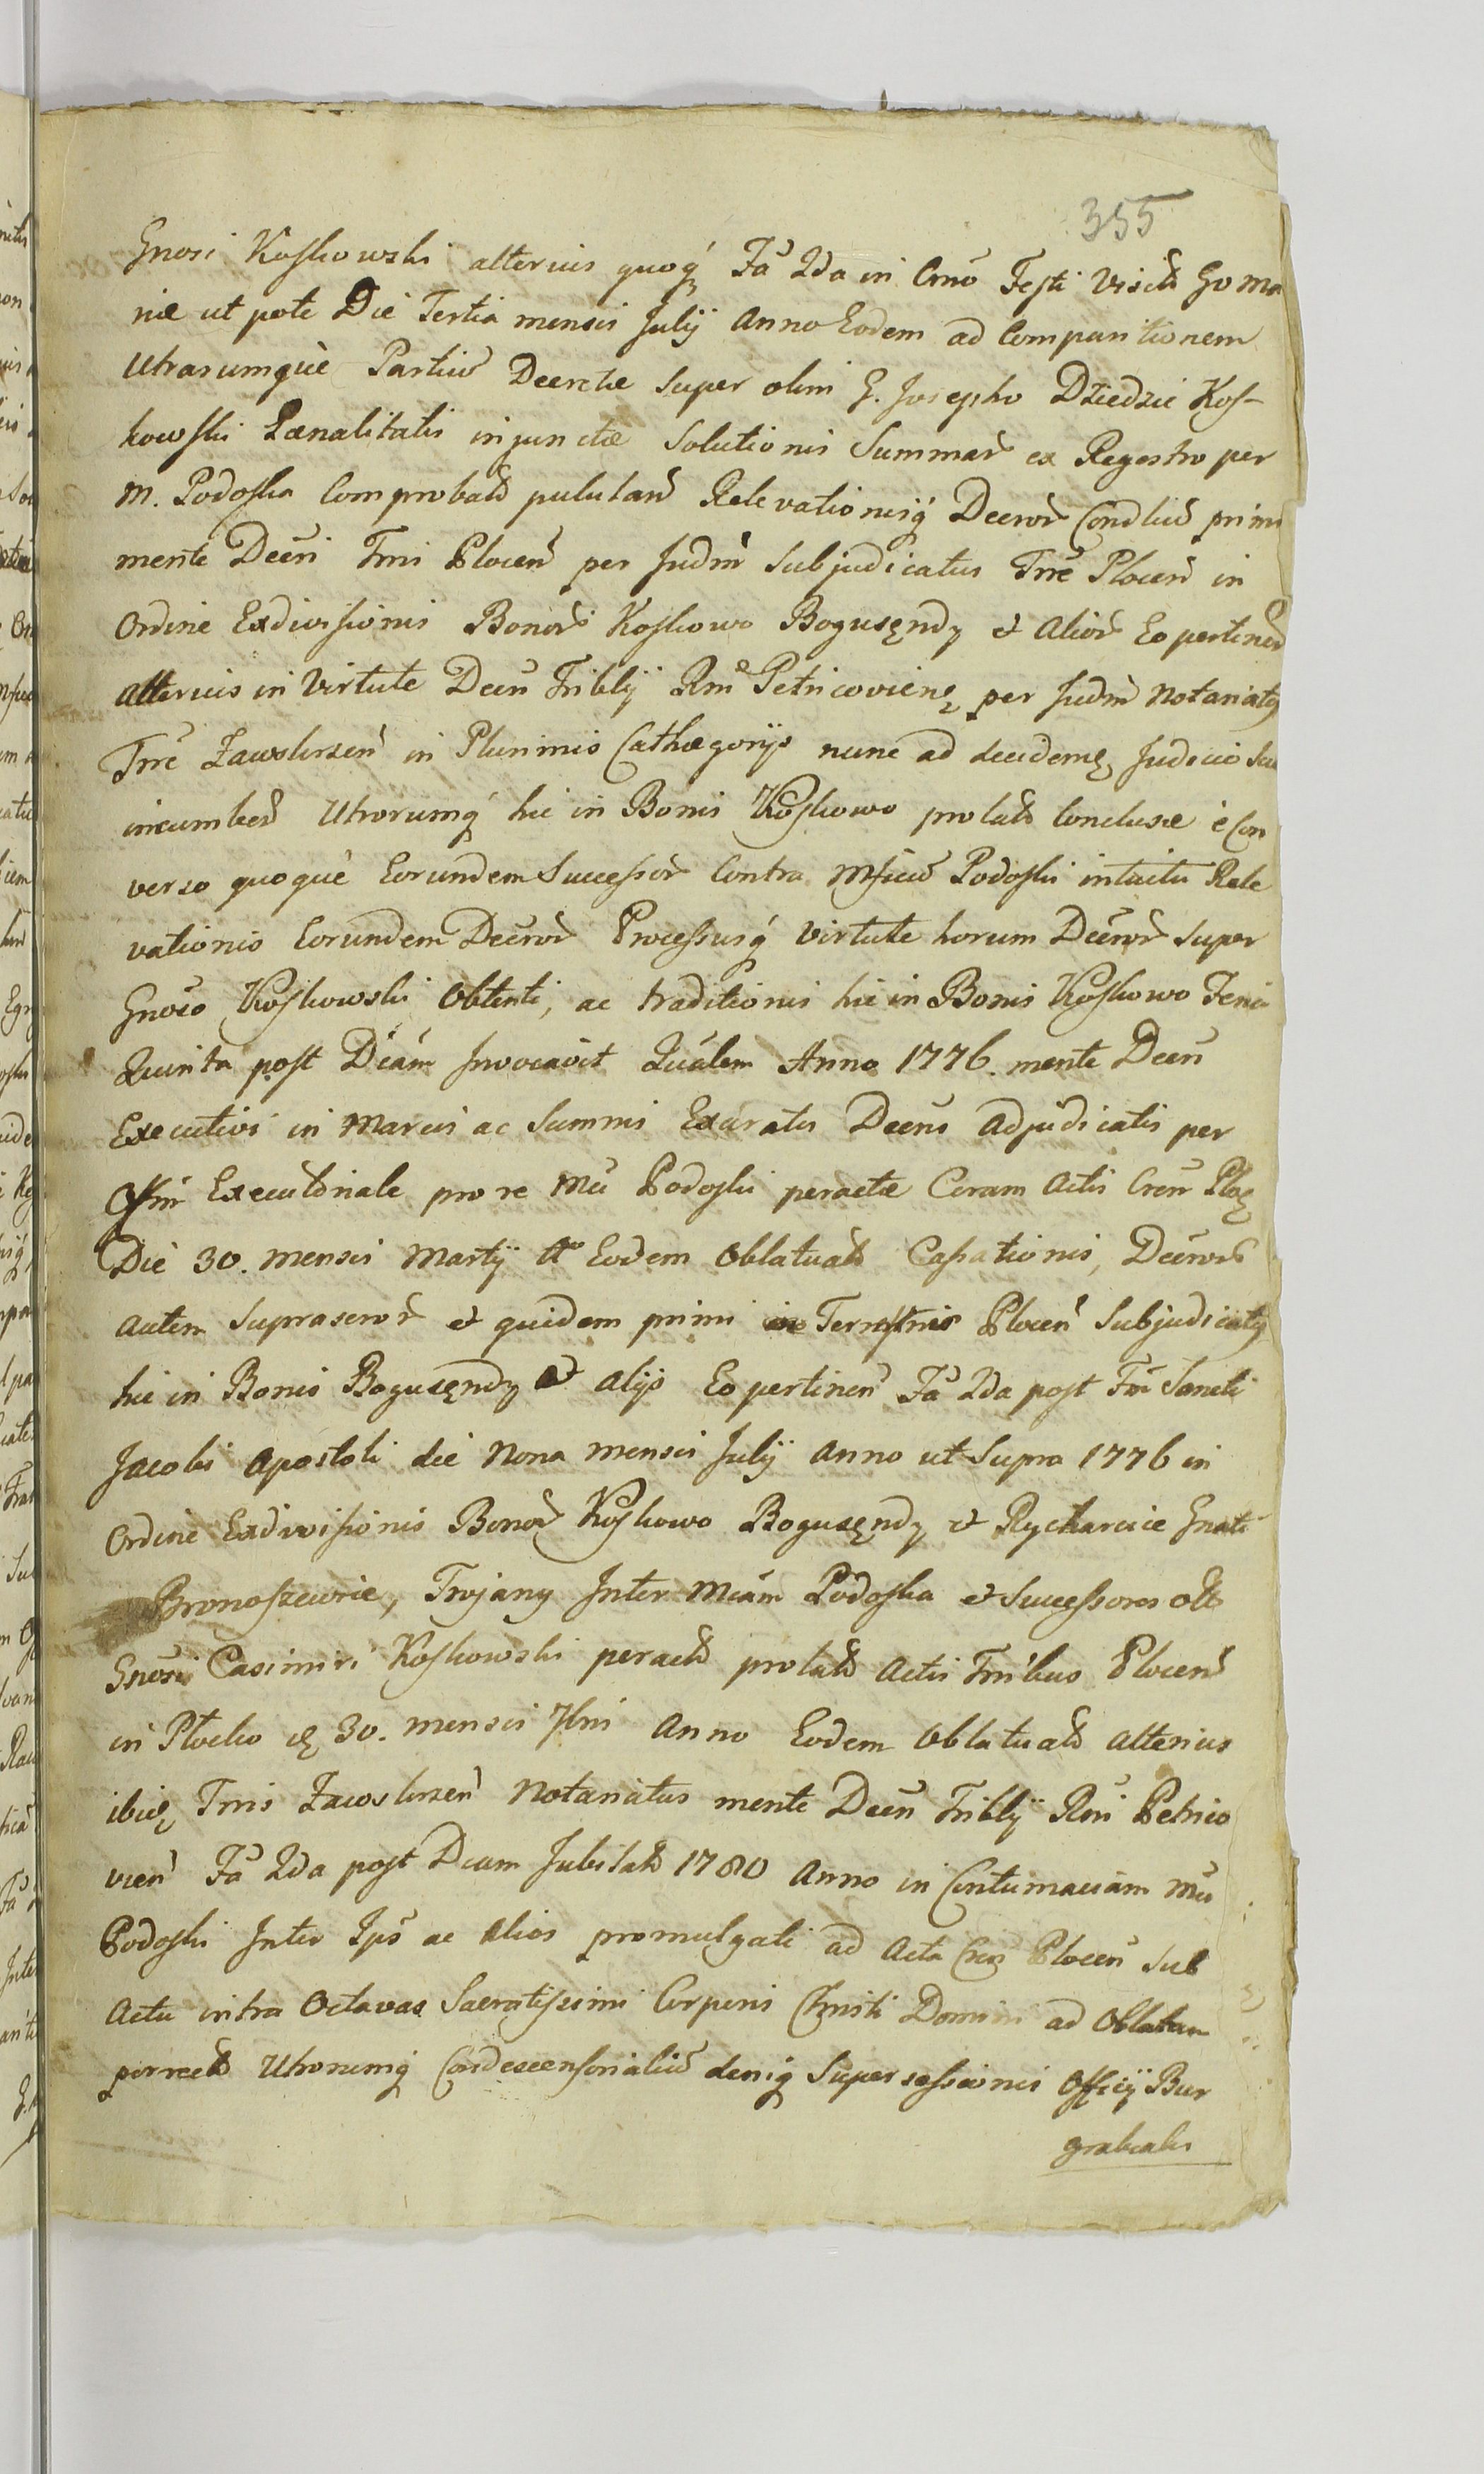 355
Gnosi Koskowski alterius quoq́ Fã 2da in Crno Festi Visitõ Go Ma
niæ ut pote Die Tertia mensis Julij Anno Eodem ad Comparitionem
Utrarumqùe Partiũ Decretæ super olim G. Josepho Dziedzic Kos-
kowski Pœnalitatis injunctæ Solutionis Summarũ ex Regestro per
M. Podoska Comprobatõ pululanõ Relevationisq́ Decrorũ Condliũ primi
mente Decri Trris Plocen̄ per Judm̃ Subjudicatus Trrẽ Plocen̄ in
Ordine Exdivisionis Bonorũ Koskowo Bogusędy et Aliorũ Eo pertinen̄
Alterius in Virtute Decri Triblij Rñi Petricovienę per Judm̃ Notariatq
Trrẽ Zawskrzen̄ in Plurimis Cathegorijs nunc ad decidemę Judicio Suo
incumben̄ Utrorumq́ hic in Bonis Koskowo prolatõ Conclusæ è Con
verso quoquè Eorundem Successorũ Contra Mficũ Podoski intuitu Rele
vationis Eorundem Decrorũ Processusq́ virtute horum Decrorũ super
Gnoso Koskowski Obtenti, ac traditionis hic in Bonis Koskowo Feria
Quinta post Dcãm Invocavit Qualem Anno 1776. mente Decri
Executivi in Marcis ac Summis Exaratis Decris Adjudicatis per
Offm̃ Executoriale pro re Mci Podoski peractæ Coram Actis Cren̄ Plocę
Die 30. mensis Martij Ao Eodem Oblatuatõ Cassationis, Decrorũ
autem Suprascrorũ et quidem primi Terrestris Plocen̄ Subjudicatq
hic in Bonis Bogusędy et alijs Eo pertinen̄ Fã 2da post Fm̃ Sancti
Jacobi Apostoli die Nona mensis Julij Anno ut Supra 1776 in
Ordine Exdivisionis Bonorũ Koskowo Bogusędy et Rycharcice Gnati
Bronoszewie, Trojany Inter Mcãm Podoska et Successores olĩ
Gnosi Casimiri Koskowski peractõ prolatõ Actis Trribus Plocen̄
in Płocko dę 30. mensis 7bris Anno Eodem Oblatuatõ Alterius
ibidę Trris Zawskrzen̄ Notariatus mente Decri Triblij Rñi Petrico
vien̄ Fã 2da post Dcam Jubilatẽ 1780 Anno in Contumaciam Mci
Podoski Inter Ips̃ ac Alios promulgati ad Acta Cren̄ Plocen̄ Sub
Actu intra Octavas Sacratissimi Corporis Christi Domini ad Oblatam
porrectõ Utrorumq́ Condescensorialiũ deniq́ Supersessionis Officij Bur
grabialis